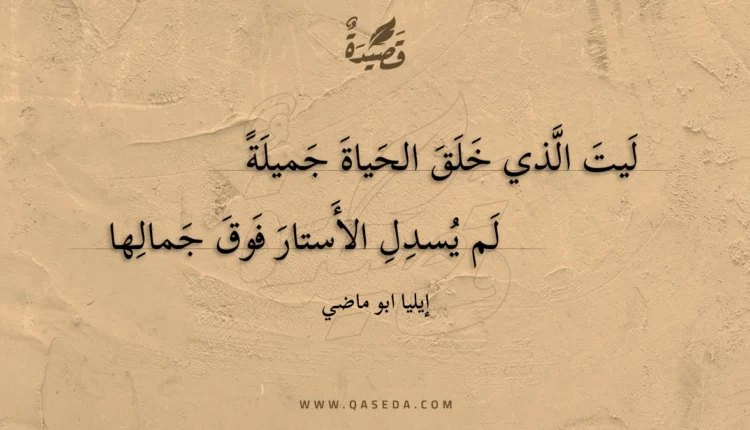 قَصيدَةٌ
لَيتَ الَّذي خَلَقَ الحَياةَ جَميلَةً
لَم يُسدِلِ الأَستارَ فَوقَ جَمالِها
إيليا ابو ماضي
WWW.QASEDA.COM